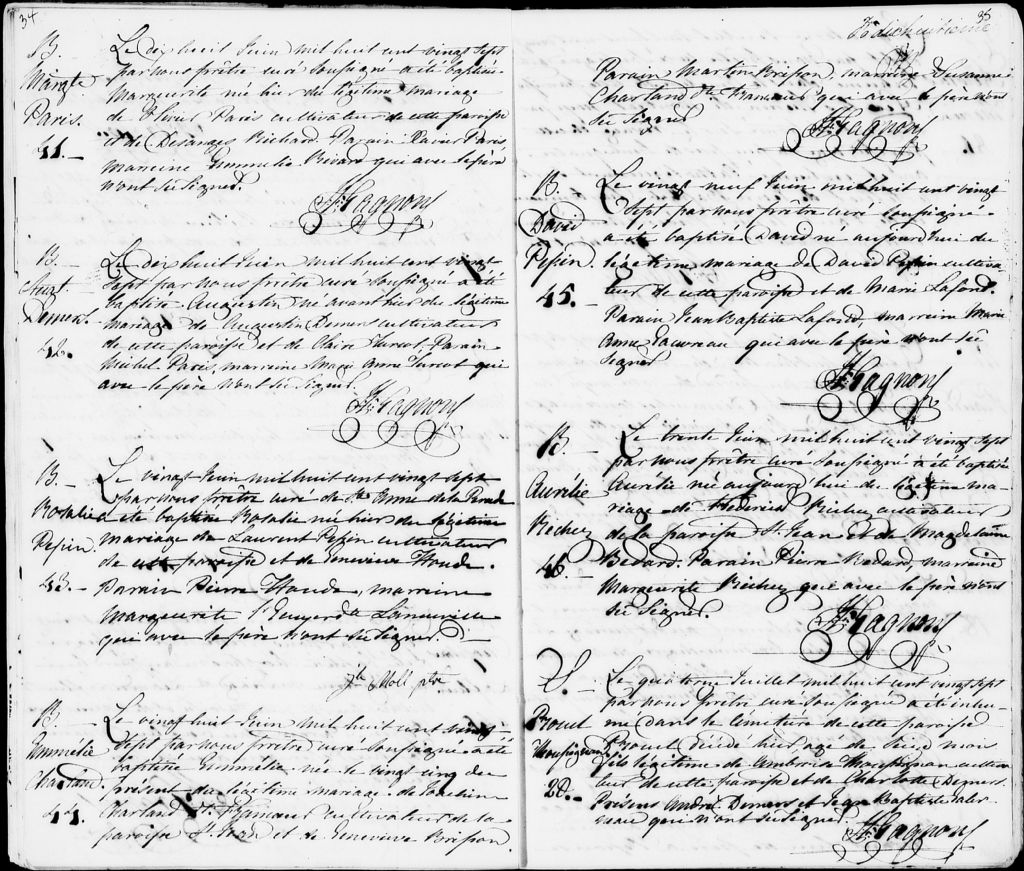 34
B.
Margte
Paris.
41.
Le dix huit Juin mil huit cent vingt sept
par nous prêtre curé soussigné a été baptisée
Marguerite née hier du légitime mariage
de Paris cultivateur de cette paroisse
et de Desanges Richard. Parain Xavier Paris
mareine Emmelie Rivard qui avec le père
n'ont su signer.
Gagnon
B.
Augt.
Demers.
42.
Le dix huit Juin mil huit cent vingt
sept par nous prêtre curé soussigné a été
baptisé Augustin né avant hier du légitime
mariage de Augustin Demers cultivateur
de cette paroisse et de Claire Turcot. Parain
Michel Paris, marreine Marie Anne Turcot qui
avec le père n'ont su signer.
Gagnon
B.
Rosalie
Pepin.
43.
Le vingt Juin mil huit cent vingt sept
par nous prêtre curé de Ste Anne de la Perade
a été baptisée Rosalie née hier du légitime
mariage de Laurent Pepin cultivateur
de cette paroisse et de Genevieve Houde.
Parain Pierre Houde, marreine
Marguerite
qui avec le père n'ont su signer.
Moll ptre
B.
Emmélie
Chartand.
44.
Le vingt huit Juin mil huit cent vingt
sept par nous prêtre curé soussigné a été
baptisée Emmélie née le vingt cinq du
présent du légitime mariage de Joachim
Chartand cultivateur de la
paroisse St. Jean et de Genevieve Brisson.
35
dixhuitième
Parain Martin Brisson, marreine Susanne
Chartand qui avec le père n'ont
su signer
Gagnon
B.
David
Pepin.
45.
Le vingt neuf Juin mil huit cent vingt
sept par nous prêtre curé soussigné
a été baptisé David né aujourd'hui du
légitime mariage de David Pepin cultiva-
teur de cette paroisse et de Marie Lafond.
Parain Jean Baptiste Lafond, marreine Marie
Anne qui avec le père n'ont su
signer
Gagnon
B.
Aurélie
Richer
46.
Le trente Juin mil huit cent vingt sept
par nous prêtre curé soussigné a été baptisée
Aurelie née aujourd'hui du légitime ma-
riage de Frederic Richer cultivateur
de la paroisse St. Jean et de Magdelaine
Bedard. Parain Pierre Bedard, marreine
Marguerite Richer qui avec le père n'ont
su signer.
Gagnon
S.
Prouet
20.
Le Juillet mil huit cent vingt sept
par nous prêtre curé soussigné a été inhu-
mé dans le cimetiere de cette paroisse
Prouet décédé hier age de
fils légitime de Ambroise cultiva-
teur de cette paroisse et de Charlotte Demers.
Présens André Demers et Jean Baptiste
qui n'ont su signer.
Gagnon